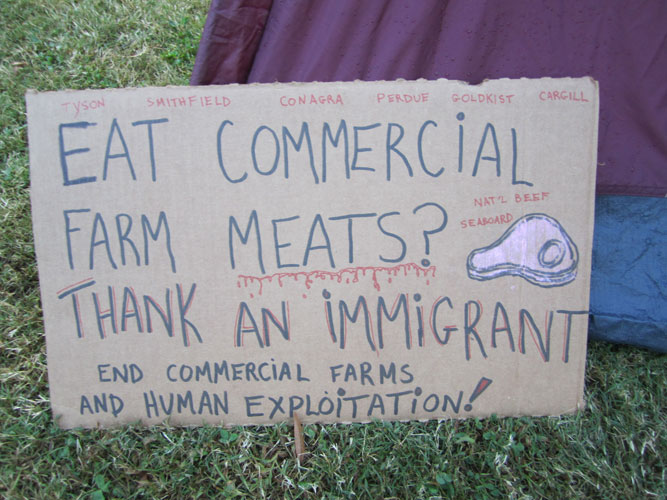 TYSON SMITHFIELD CONAGRA PERDUE GOLDKIST CARGILL
EAT COMMERCIAL
NAT'L BEEF
SEABOARD
FARM MEATS?
THANK AN IMMIGRANT
END COMMERCIAL FARMS
AND HUMAN EXPLOITATION!